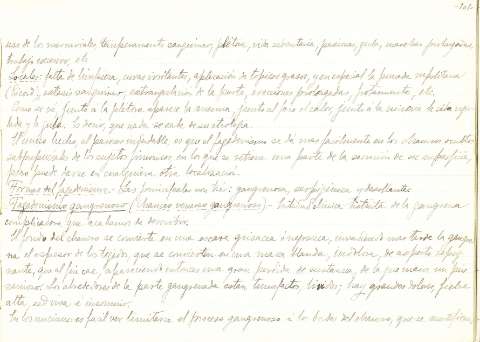 uso de los mercuriales, temperamento sanguíneo, plétora, vida sedentaria, pasiones, gula, marchas prolongadas,
trabajo excesivo, etc
Locales: falta de limpieza, curas irritantes, aplicación de tópicos grasos, y en especial la pomada napolitana
(Ricord), estasis sanguíneo, estrangulación de la parte, erecciones prolongadas, frotamiento, etc.
Como se ve, frente a la plétora aparece la anemia, frente al frío el calor, frente a la miseria la vida rega-
lada y la gula. Es decir, que nada se sabe de su etiología.
El único hecho, al parecer indudable, es que el fagedenismo se da más fácilmente en los chancros ocultos
subprepuciales de los sujetos fimosicos en los que se retiene una parte de la secreción de su superficie,
pero puede darse en cualquiera otra localización.
Formas del fagedenismo: Las principales son tres: gangrenosa, serpiginosa y terebrante.
Fagedenismo gangrenoso (chancro venereo gangrenoso). de la gangrena
complicación que acabamos de describir.
El fondo del chancro se convierte en una escara grisácea o negruzca, invadiendo más tarde la gangre-
na el espesor de los tejidos, que se convierten en una masa blanda, indolora, de aspecto repug-
nante, que al fin cae, apareciendo entonces una gran pérdida de sustancia, de la que mana un pus
sanioso. Los alrededores de la parte gangrenada están tumefactos, lívidos; hay grandes dolores, fiebre
alta, sed viva e insomnio.
En los ancianos es fácil ver limitarse el proceso gangrenoso a los bordes del chancro, que se